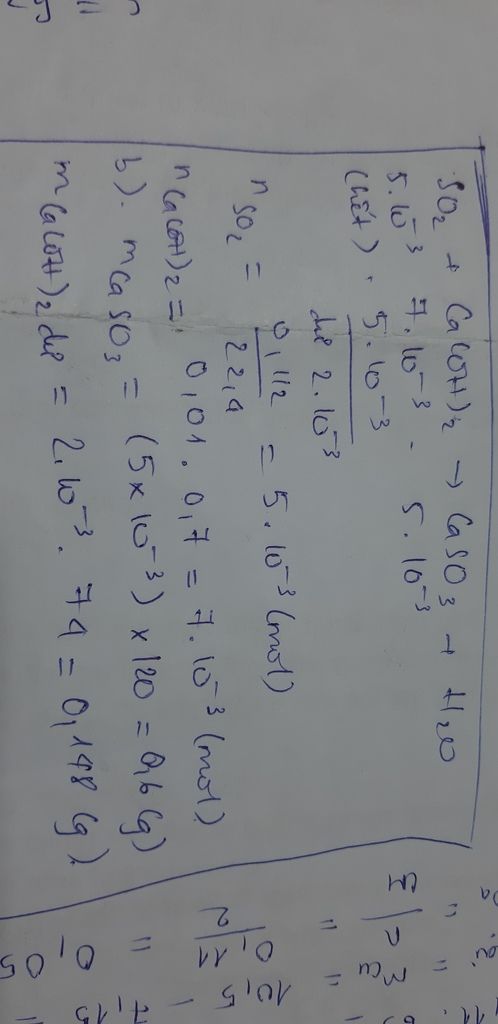 SO2 + Ca(OH)2 → CaSO3 + H2O
5.10⁻³ 7.10⁻³ . 5.10⁻³
(hết) . 5.10⁻³
dư 2.10⁻³
n SO2 = 0,112 / 22,4 = 5.10⁻³ (mol)
n Ca(OH)2 = 0,01 . 0,7 = 7.10⁻³ (mol)
b). mCaSO3 = (5×10⁻³) × 120 = 0,6 (g)
mCa(OH)2 dư = 2.10⁻³ . 74 = 0,148 (g).